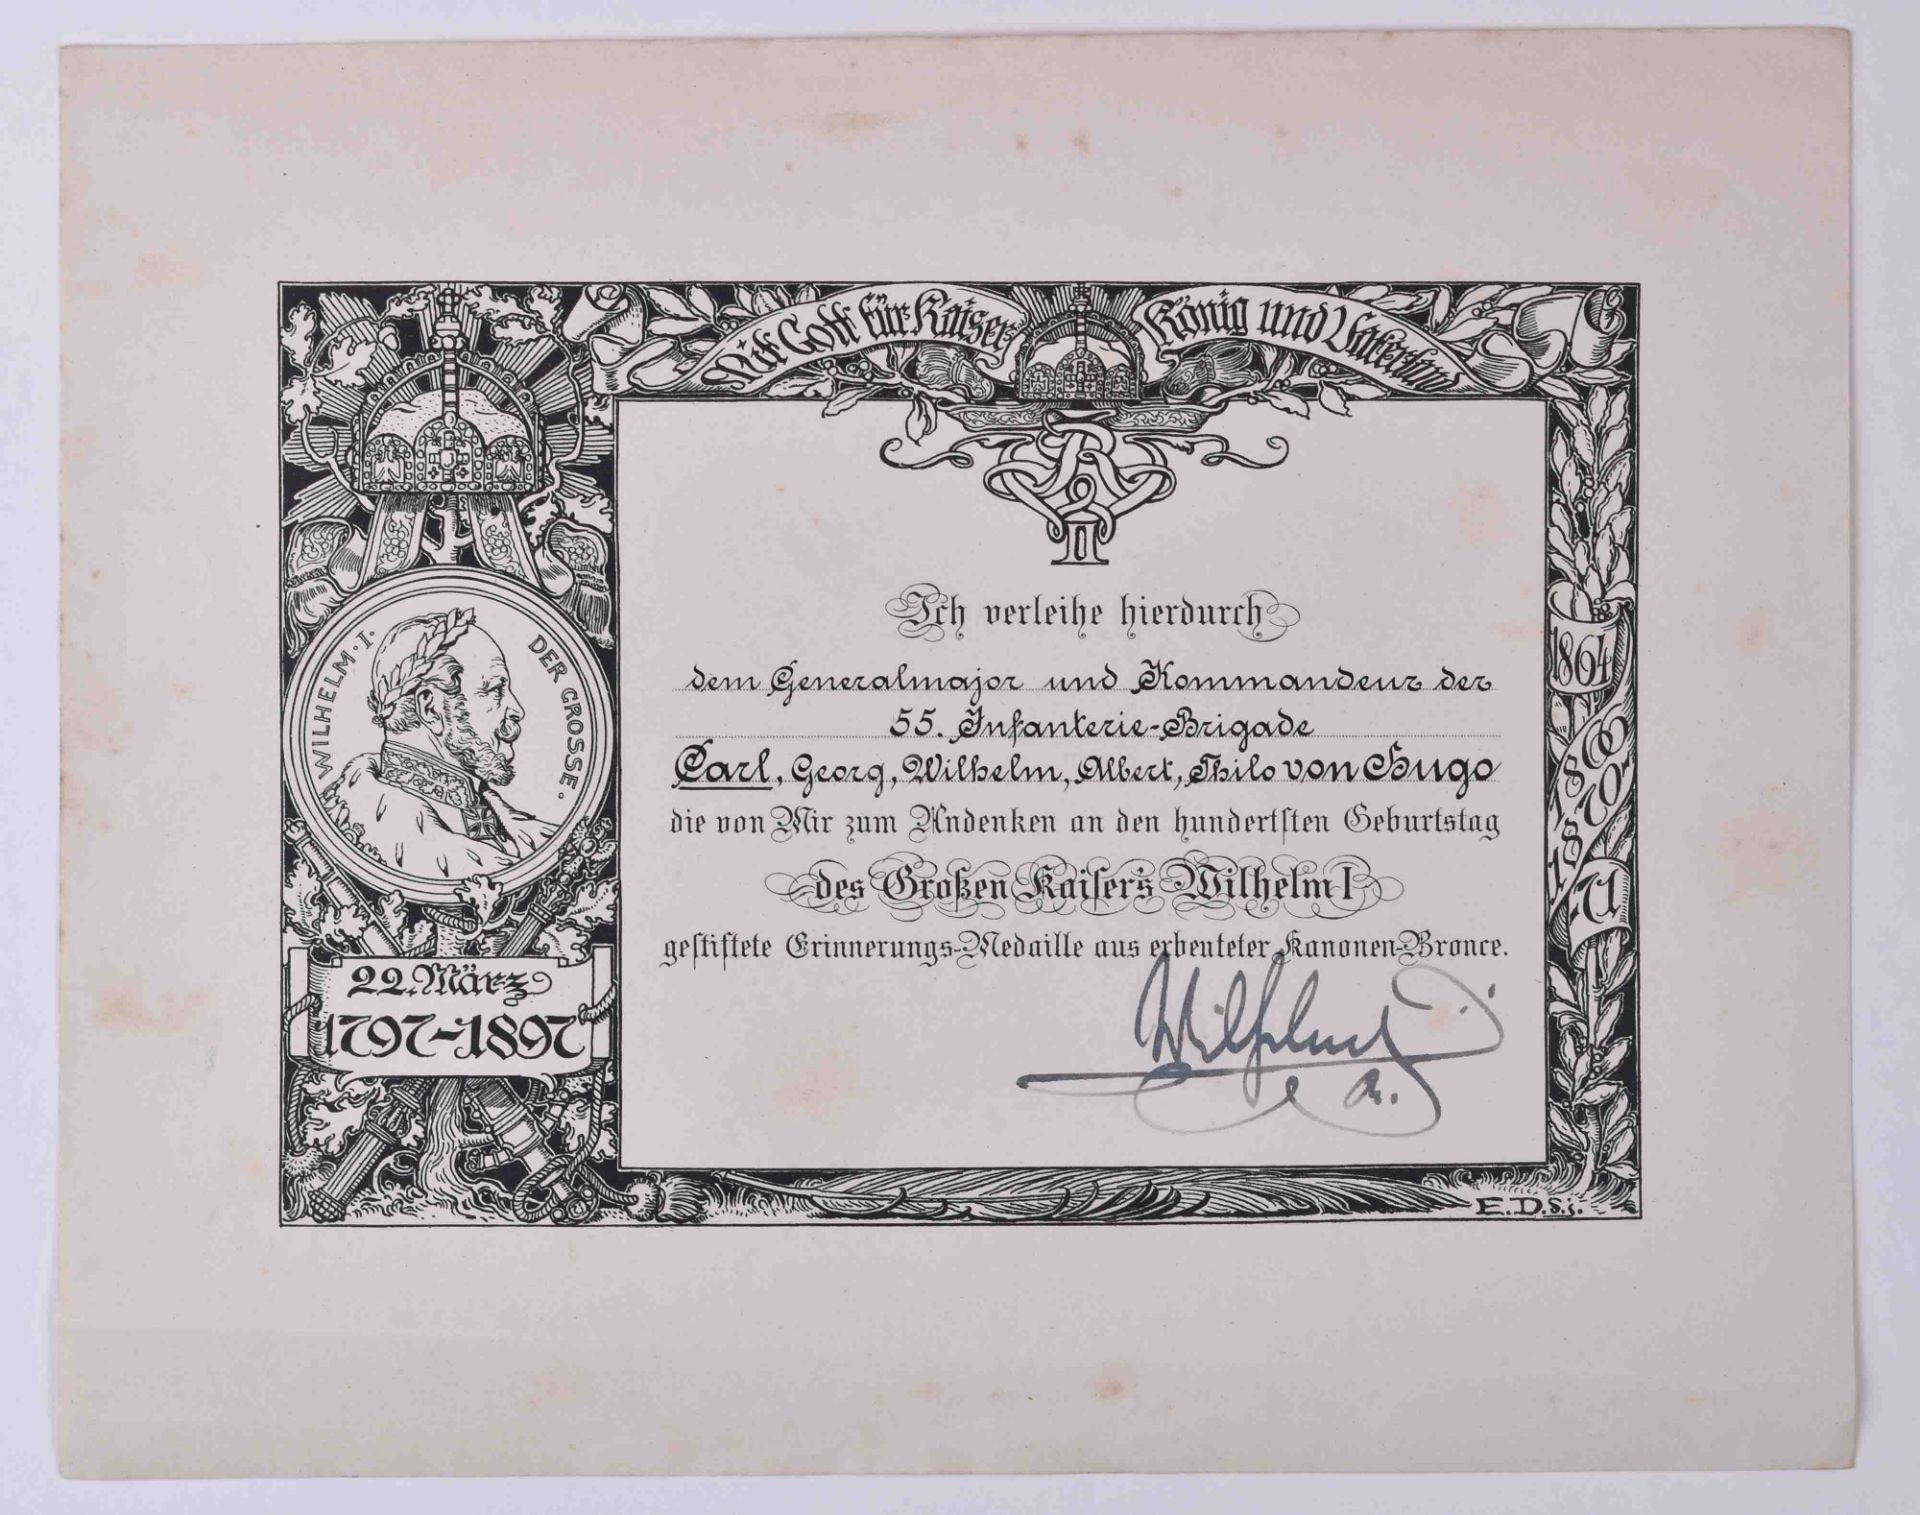 Mit Gott für Kaiser König und Vaterland
WILHELM · I · DER GROSSE.
22. März
1797–1897
W R II
Ich verleihe hierdurch
dem Generalmajor und Kommandeur der
55. Infanterie-Brigade
Carl, Georg, Wilhelm, Albert, Thilo von Hugo
die von Mir zum Andenken an den hundertſten Geburtstag
des Großen Kaiſers Wilhelm I
geſtiftete Erinnerungs-Medaille aus erbeuteter Kanonen-Bronce.
Wilhelm
R.
1864
1866
1870
71
E. D. d. j.